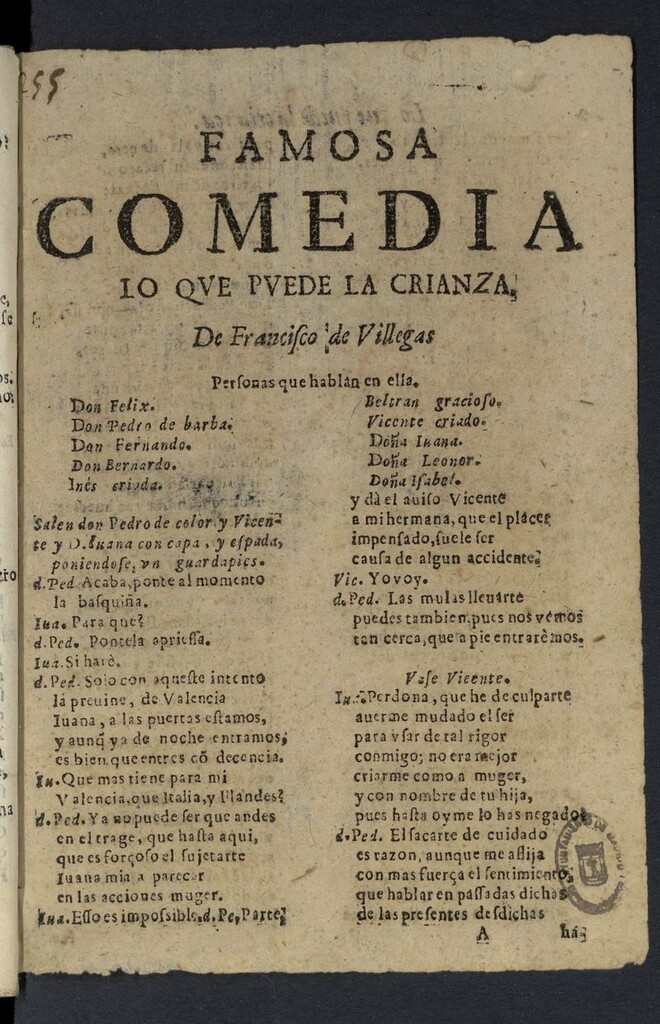 255
FAMOSA
COMEDIA
LO QVE PVEDE LA CRIANZA,
De Franciſco de Villegas
Perſonas que hablan en ella.
Don Felix.
Don Pedro de barba.
Don Fernando.
Don Bernardo.
Inés criada.
Beltran gracioſo.
Vicente criado.
Doña Iuana.
Doña Leonor.
Doña Iſabel.
Salen don Pedro de color y Vicen-
te y D. Iuana con capa, y eſpada,
poniendoſe, vn guardapies.
d.Ped. Acaba, ponte al momento
la baſquiña.
Iua. Para que?
d.Ped. Pontela aprieſſa.
Iua. Si harè.
d.Ped. Solo con aqueſte intento
la preuine, de Valencia
Iuana, a las puertas eſtamos,
y aunq̃ ya de noche entramos,
es bien que entres cõ decencia.
Iu. Que mas tiene para mi
Valencia, que Italia, y Flandes?
d.Ped. Ya no puede ſer que andes
en el trage, que haſta aqui,
que es forçoſo el ſujetarte
Iuana mia a parecer
en las acciones muger.
Iua. Eſſo es impoſsible. d.Pe. Parte,
y dà el auiſo Vicente
a mi hermana, que el placer
impenſado, ſuele ſer
cauſa de algun accidente.
Vic. Yo voy.
d.Ped. Las mulas lleuarte
puedes tambien, pues nos vèmos
tan cerca, que a pie entrarèmos.
Vaſe Vicente.
Iu. Perdona, que he de culparte
auerme mudado el ſer
para vſar de tal rigor
conmigo; no era mejor
criarme como a muger,
y con nombre de tu hija,
pues haſta oy me lo has negado?
d.Ped. El ſacarte de cuidado
es razon, aunque me aflija
con mas fuerça el ſentimiento,
que hablar en paſſadas dichas
de las preſentes deſdichas
A
ha-